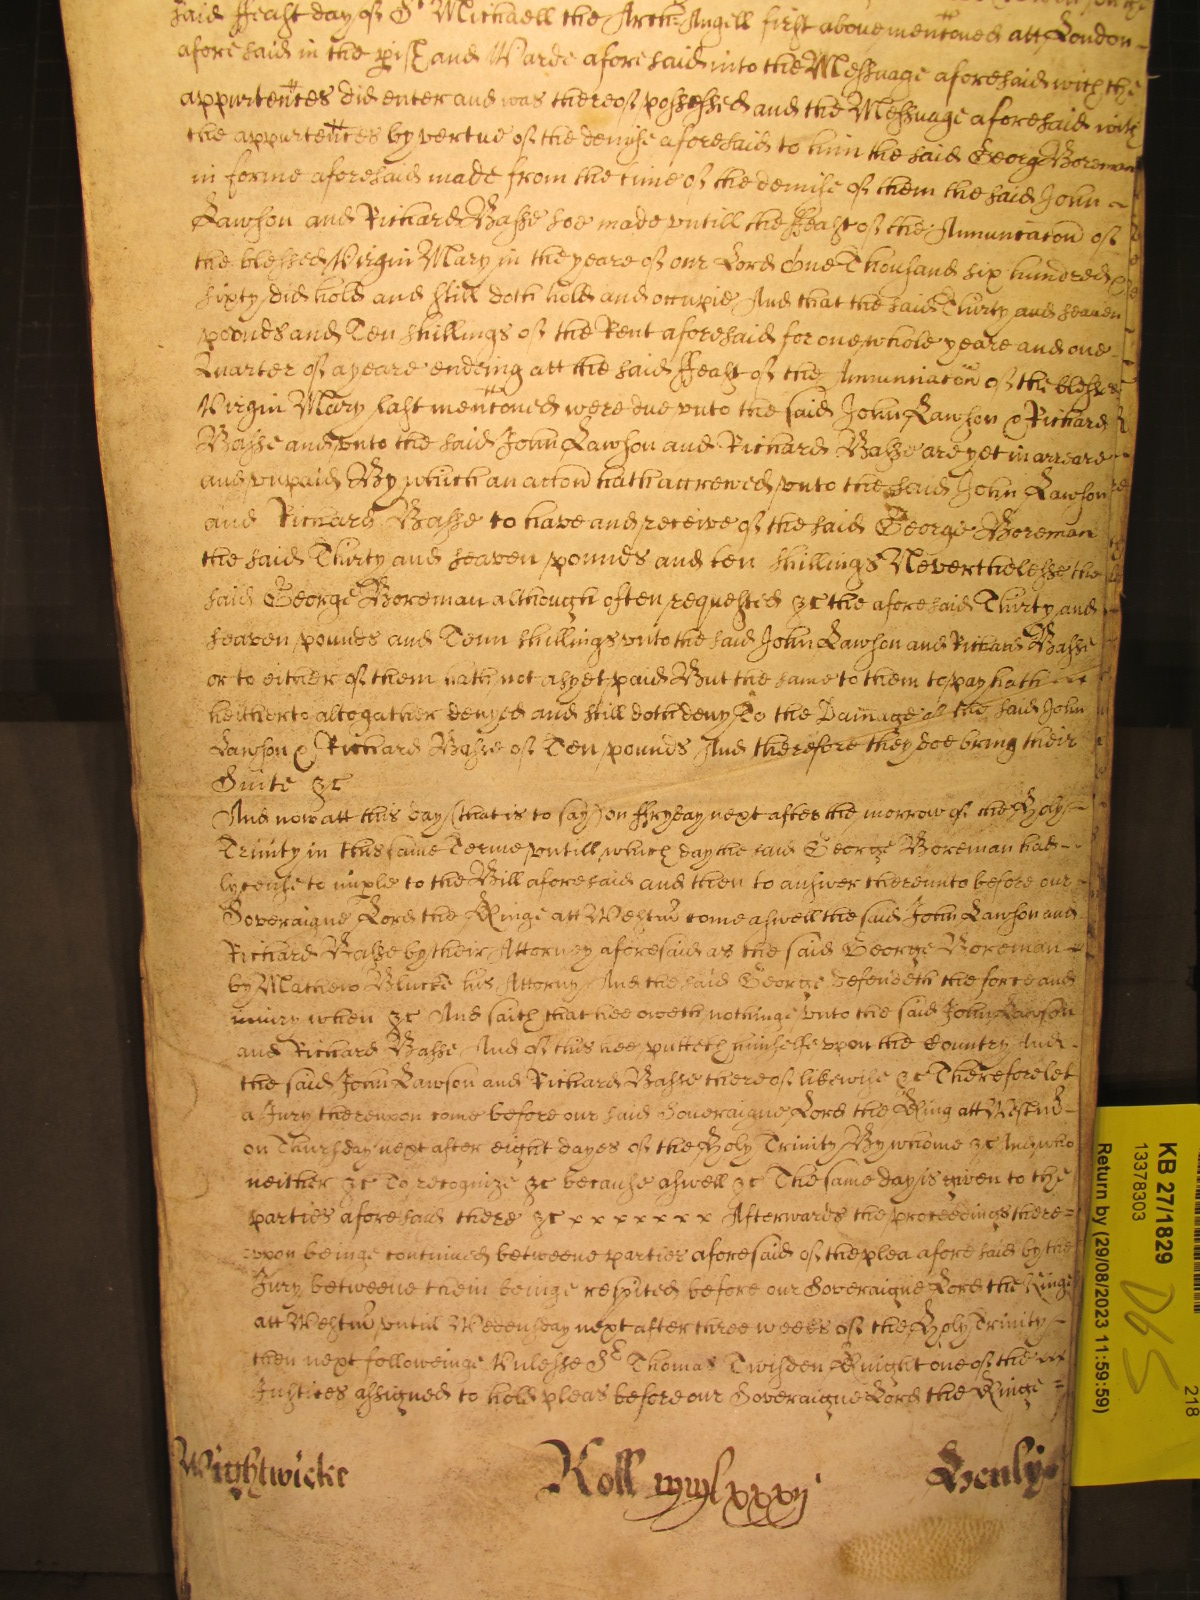 said ffeast day of St Michaell the Arch-Angell first above mentoned att London
aforesaid in the pish and Warde aforesaid into the Messuage aforesaid with the
appurtences did enter and was thereof possessed and the Messuage aforesaid with
the appurtences by vertue of the demise aforesaid to him the said Georg Boreman
in forme aforesaid made from the time of the demise of them the said John
Lawson and Richard Basse soe made vntill the ffeast of the Annuntacon of
the blessed Virgin Mary in the yeare of our Lord One Thousand six hundred
sixty did hold and still doth hold and occupie And that the said Thirty and seaven
pounds and Ten shillings of the Rent aforesaid for one whole yeare and one
Quarter of a yeare endeing att the said ffeast of the Annuntiacon of the blessed
Virgin Mary last mentoned were due vnto the said John Lawson & Richard
Basse and vnto the said John Lawson and Richard Basse are yet in arreare
and vnpaid By which an accon hath accrewed vnto the said John Lawson
and Richard Basse to have and receive of the said George Boreman
the said Thirty and seaven pounds and ten shillings Neverthelesse the
said George Boreman although often requested &c the aforesaid Thirty and
seaven pounds and Tenn shillings vnto the said John Lawson and Richard Basse
or to either of them hath not as yet paid But the same to them to pay hath
heitherto altogather denyed and still doth deny To the Damage of the said John
Lawson & Richard Basse of Ten pounds And therefore they doe bring their
Suite &c
And now att this day (that is to say) on ffryday next after the morrow of the Holy
Trinity in this same Terme vntill which day the said George Boreman had
lycense to imple to the Bill aforesaid and then to answer thereunto before our
Soveraigne Lord the Kinge att Westm come aswell the said John Lawson and
Richard Basse by their Attorney aforesaid as the said George Boreman
by Mathew Blucke his Attorny And the said George defendeth the force and
iniury when &c And saith that hee oweth nothinge vnto the said John Lawson
and Richard Basse And of this hee putteth himselfe vpon the Country And
the said John Lawson and Richard Basse thereof likewise &c Therefore let
a Jury thereupon come before our said Soveraigne Lord the King att Westm
on Thursday next after eight dayes of the Holy Trinity By whome &c And who
neither &c To recognize &c because aswell &c The same day is given to the
parties aforesaid there &c x x x x x x x Afterwards the proceedings there=
vpon beinge continued betweene parties aforesaid of the plea aforesaid by the
Jury betweene them beinge respited before our Soveraigne Lord the Kinge
att Westm vntill Wedensday next after three weeks of the Holy Trinity
then next followeinge Vnlesse Sr Thomas Twisden Knight one of the
Justices assigned to hold pleas before our Soveraigne Lord the Kinge
Wightwicke Roll Henly
KB 27/1829
13378303
Return by (29/08/2023 11:59:59)
218